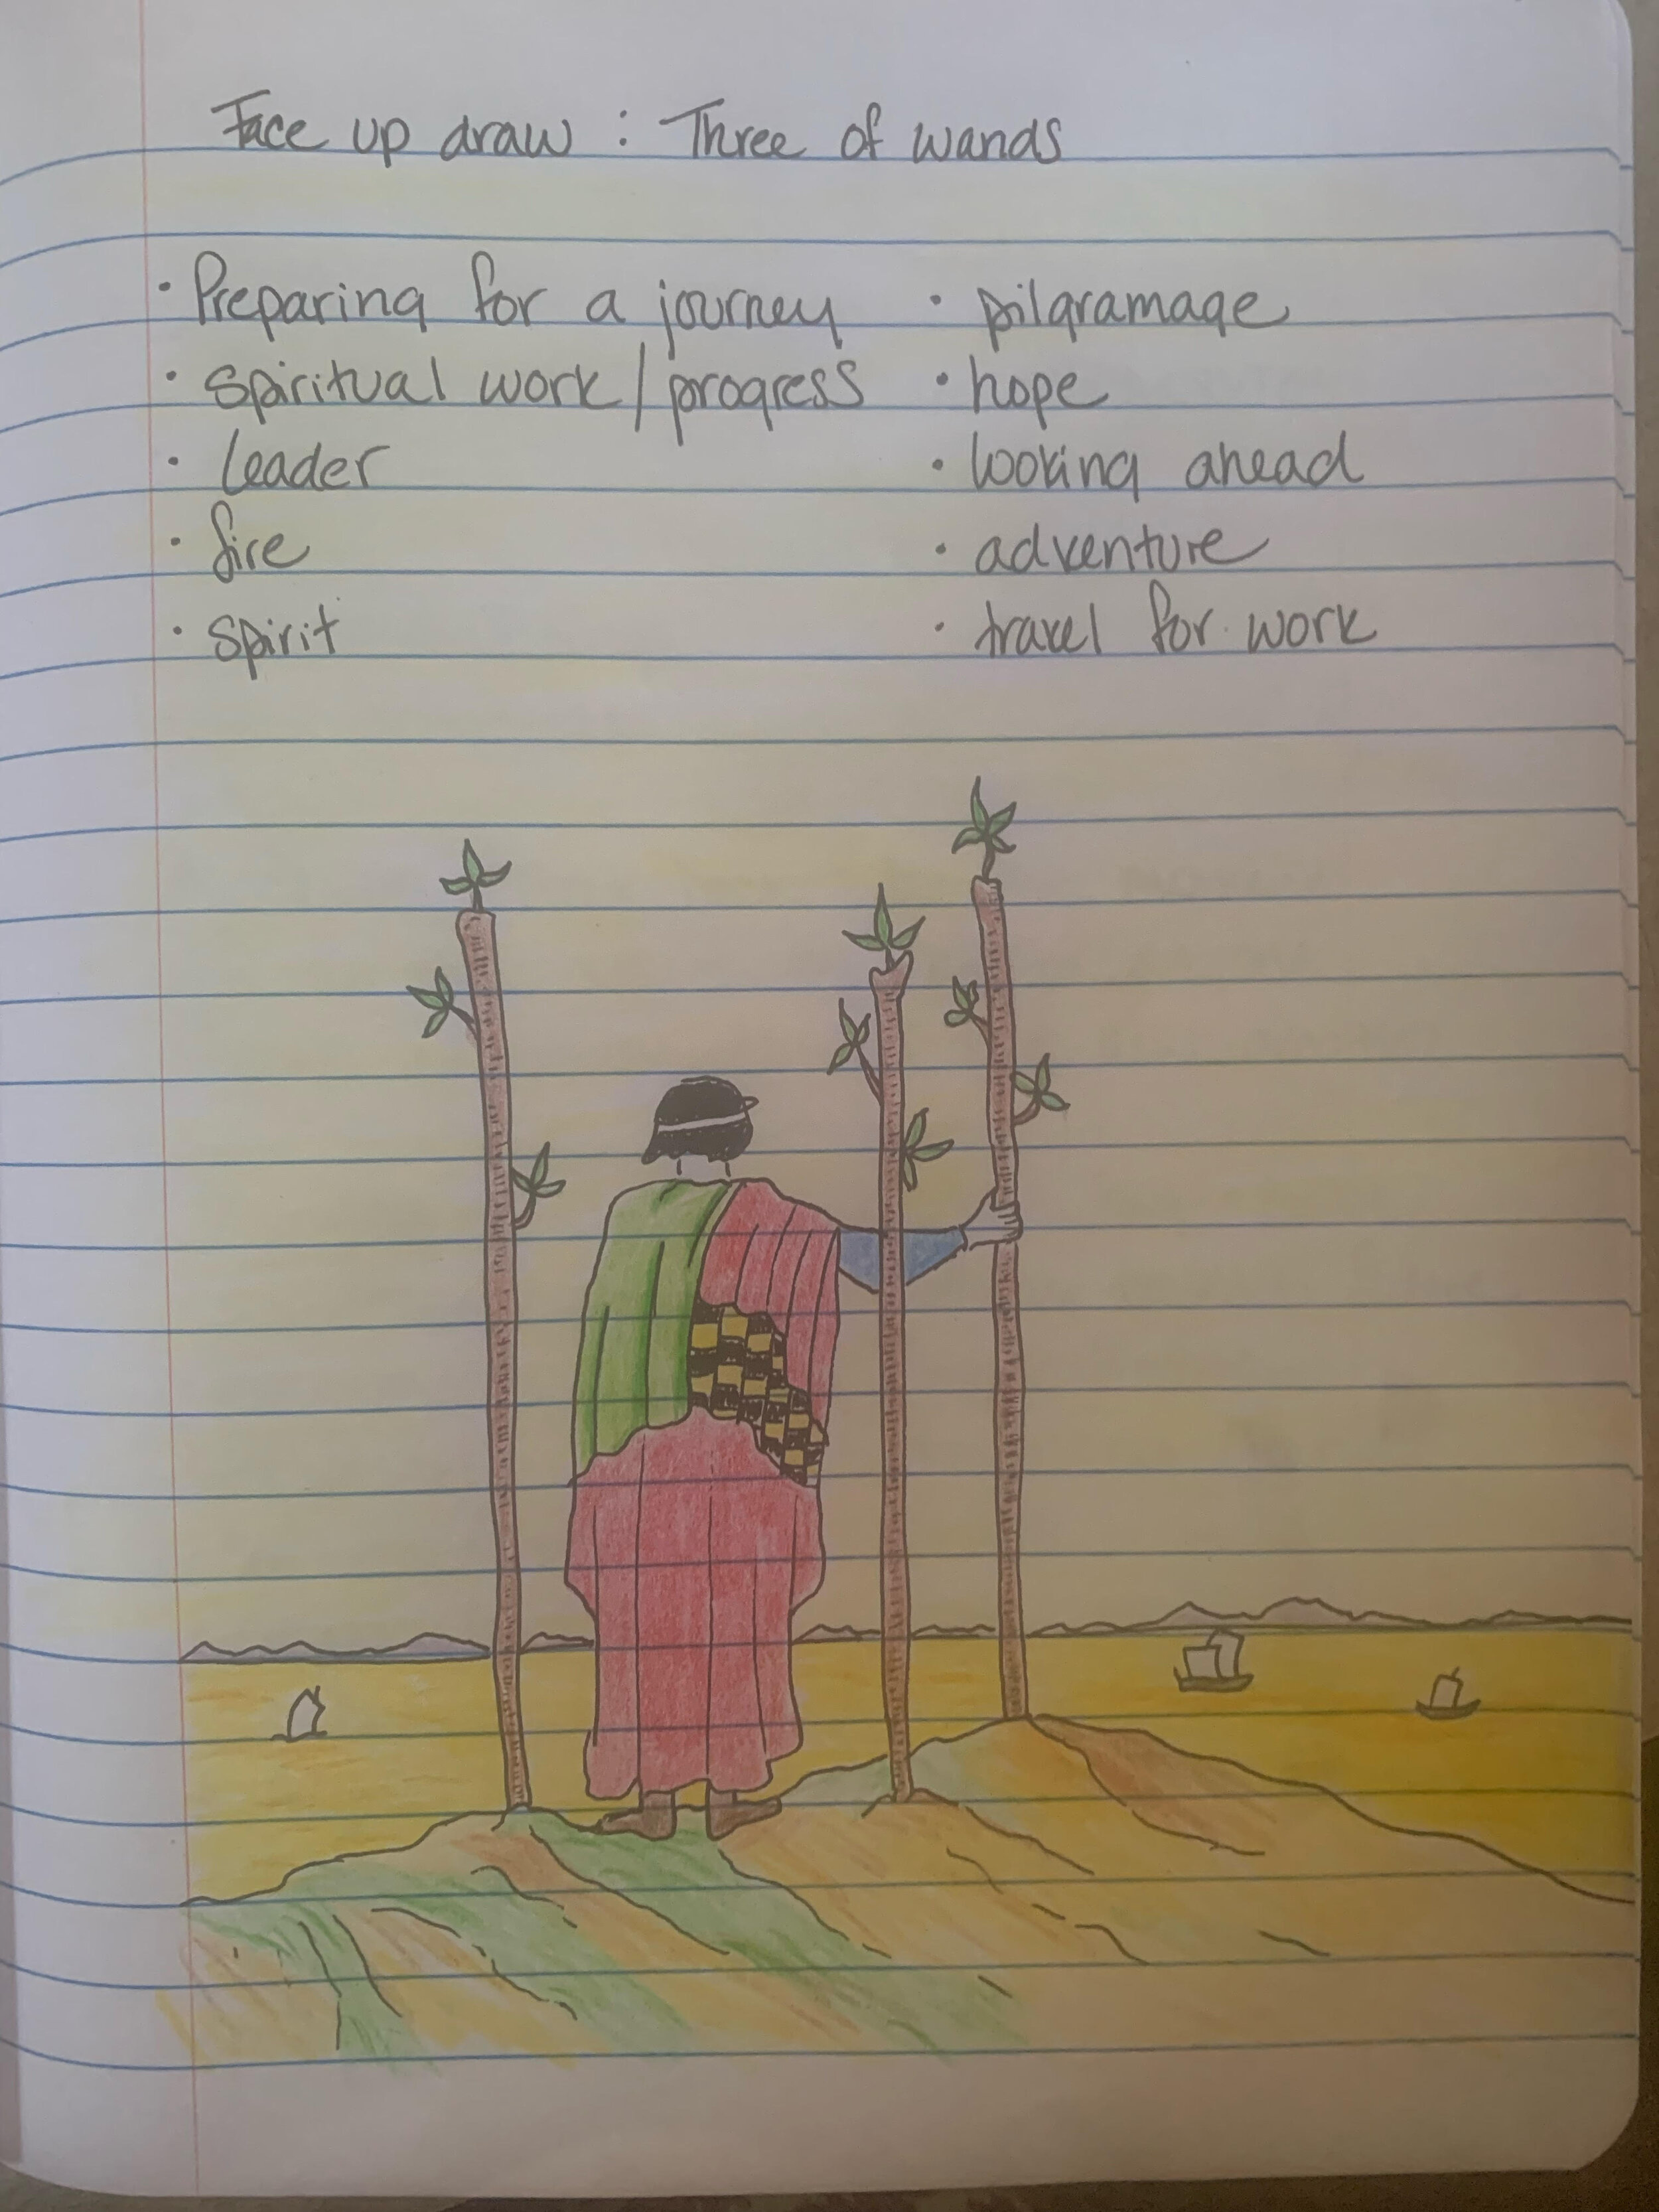 Face up draw : Three of wands
· Preparing for a journey
· spiritual work / progress
· leader
· fire
· spirit
· pilgramage
· hope
· looking ahead
· adventure
· travel for work